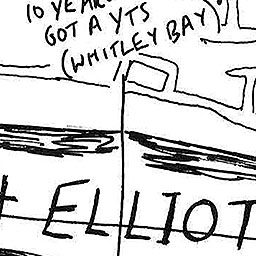 10 YEARS
GOT A YTS
(WHITLEY BAY)
ELLIOT